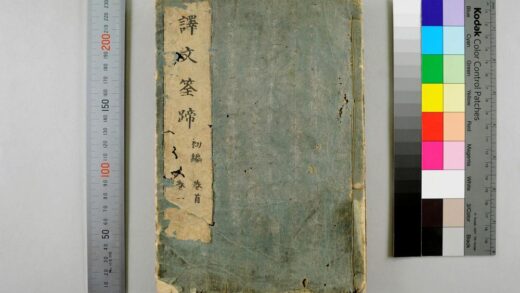 譯文筌蹄
初編 巻首
巻一
50
100
150
200
Kodak Color Control Patches
Blue
Cyan
Green
Yellow
Red
Magenta
White
3/Color
Black